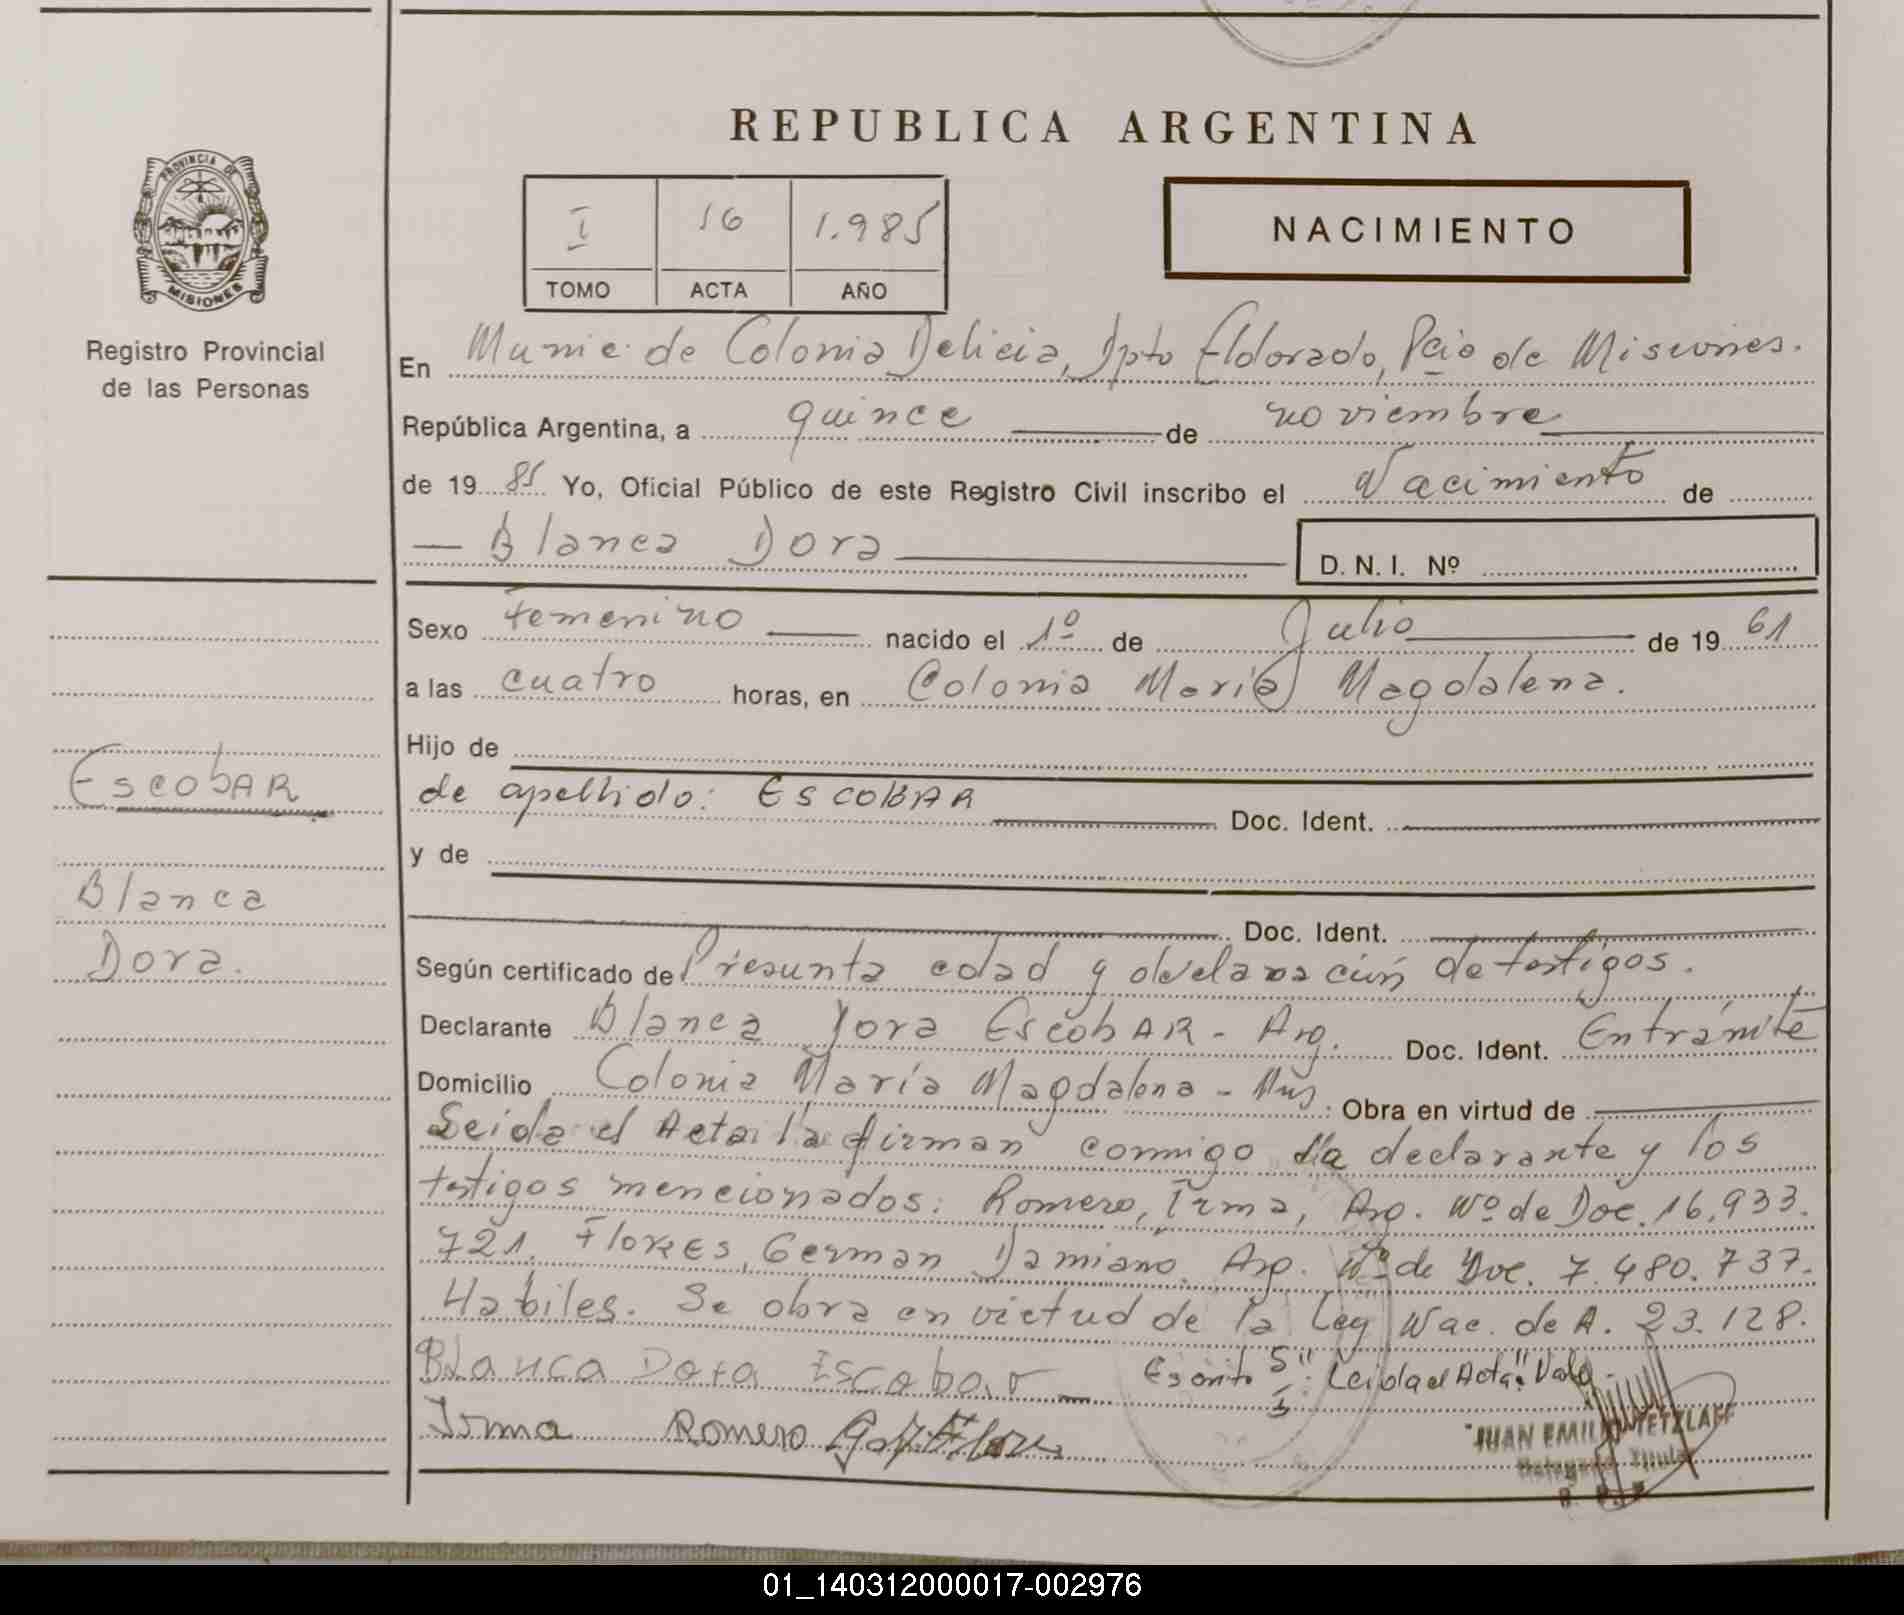 REPUBLICA ARGENTINA
PROVINCIA DE
MISIONES
Registro Provincial
de las Personas
I 16 1.985
TOMO ACTA AÑO
NACIMIENTO
En Munic. de Colonia Delicia, Dpto Eldorado, Pcia de Misiones.
República Argentina, a quince de noviembre
de 19 85 Yo, Oficial Público de este Registro Civil inscribo el Nacimiento de
Blanca Dora
D. N. I. Nº
Sexo femenino nacido el 1º de Julio de 19 61
a las cuatro horas, en Colonia María Magdalena.
Hijo de
de apellido: ESCOBAR Doc. Ident.
y de
Doc. Ident.
EscobAR
Blanca
Dora.
Según certificado de Presunta edad y declaración de testigos.
Declarante Blanca Dora EscobAR - Arg. Doc. Ident. Entrámite
Domicilio Colonia María Magdalena - Mns Obra en virtud de
Leida el Acta la firman conmigo la declarante y los
testigos mencionados: Romero, Irma, Arg. Nº de Doc. 16.933.
721. FloREs, German Damiano. Arg. Nº de Doc. 7.480.737.
Habiles. Se obra en virtud de la Ley Nac. de A. 23.128.
Blanca Dora Escobar Escrito S/I: "Leida el Acta" Vale.
Irma Romero
JUAN EMILIO TETZLAFF
Delegado Titular
01_140312000017-002976